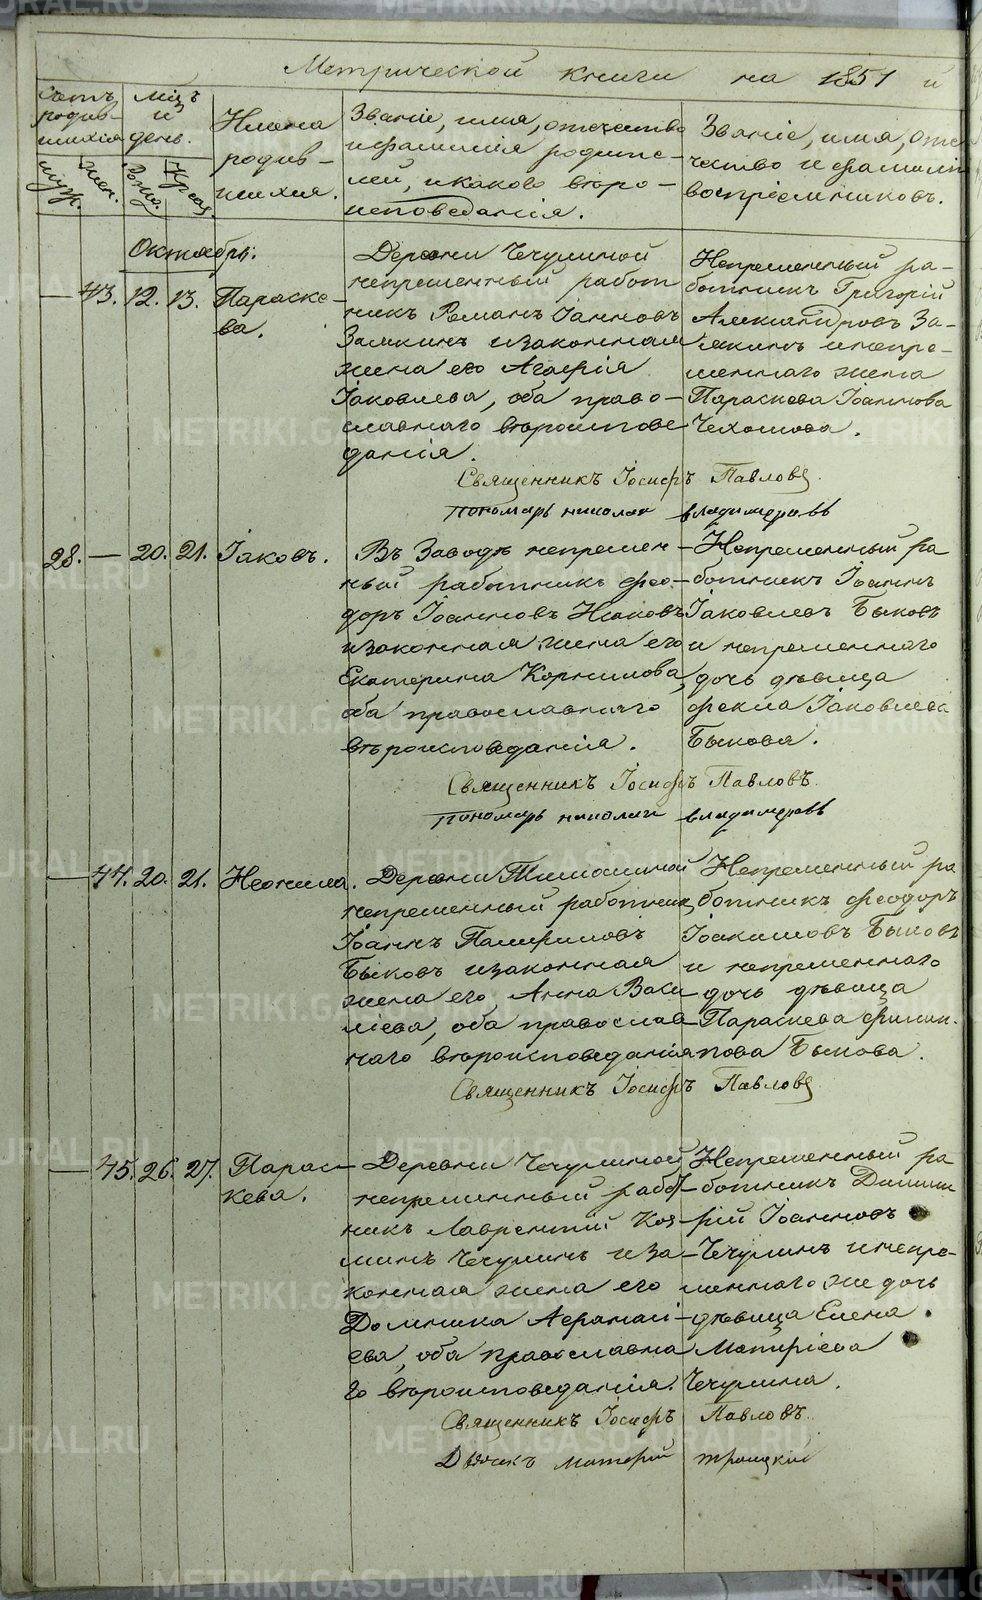 Метрической книги на 1851 й
Счетъ родив-шихся
муж.
жен.
Мцъ и день.
Рожд.
Крещ.
Имена родив-шихся.
Званіе, имя, отчество
и фамилія родите-
лей, и какого вѣро-
исповеданія.
Званіе, имя, отче
чество и фамилія
воспріемниковъ.
Октябрь:
— 43. 12. 13. Параске-
ва.
Деревни Чечулиной
непременный работ
никъ Романъ Іанновъ
Заякинъ и законная
жена его Агафія
Іаковлева, оба право-
славнаго вѣроиспове-
данія.
Непременный ра-
ботникъ Григорій
Александровъ За-
якинъ и непре-
меннаго жена
Параскева Іоаннова
Чехомова.
Священникъ Іосифъ Павловъ
Пономарь николай владимеровъ
28. — 20. 21. Іаковъ.
Въ Заводѣ непремен-
ный работникъ Фео-
доръ Іоанновъ Исаковъ
и законная жена его
Екатерина Корнилова,
оба православнаго
вѣроисповеданія.
Непременный ра
ботникъ Іоаннъ
Іаковлевъ Быковъ
и непременнаго
дочь дѣвица
Фекла Іаковлева
Быкова.
Священникъ Іосифъ Павловъ.
Пономарь николай владимеровъ
— 44. 20. 21. Неонила.
Деревни Тимошиной
непременный работник
Іоаннъ Памфиловъ
Быковъ и законная
жена его, Анна Васи
ліева, оба православ-
наго вѣроисповеданія
Непременный ра
ботникъ Феодоръ
Іоакимовъ Быковъ
и непременнаго
дочь дѣвица
Параскева Филип-
пова Быкова.
Священникъ Іосифъ Павловъ
— 45. 26. 27. Парас-
кева.
Деревни Чечулиной
непременный работ-
никъ Лаврентій Коз-
минъ Чечулинъ и за-
конная жена его
Домника Афанасі-
ева, оба православна
го вѣроисповеданія.
Непременный ра
ботникъ Димит
рій Іоанновъ
Чечулинъ и непре-
меннаго же дочь
дѣвица Елена
Матфіева
Чечулина.
Священникъ Іосифъ Павловъ.
Дьячекъ Матфій троицкій
METRIKI.GASO-URAL.RU